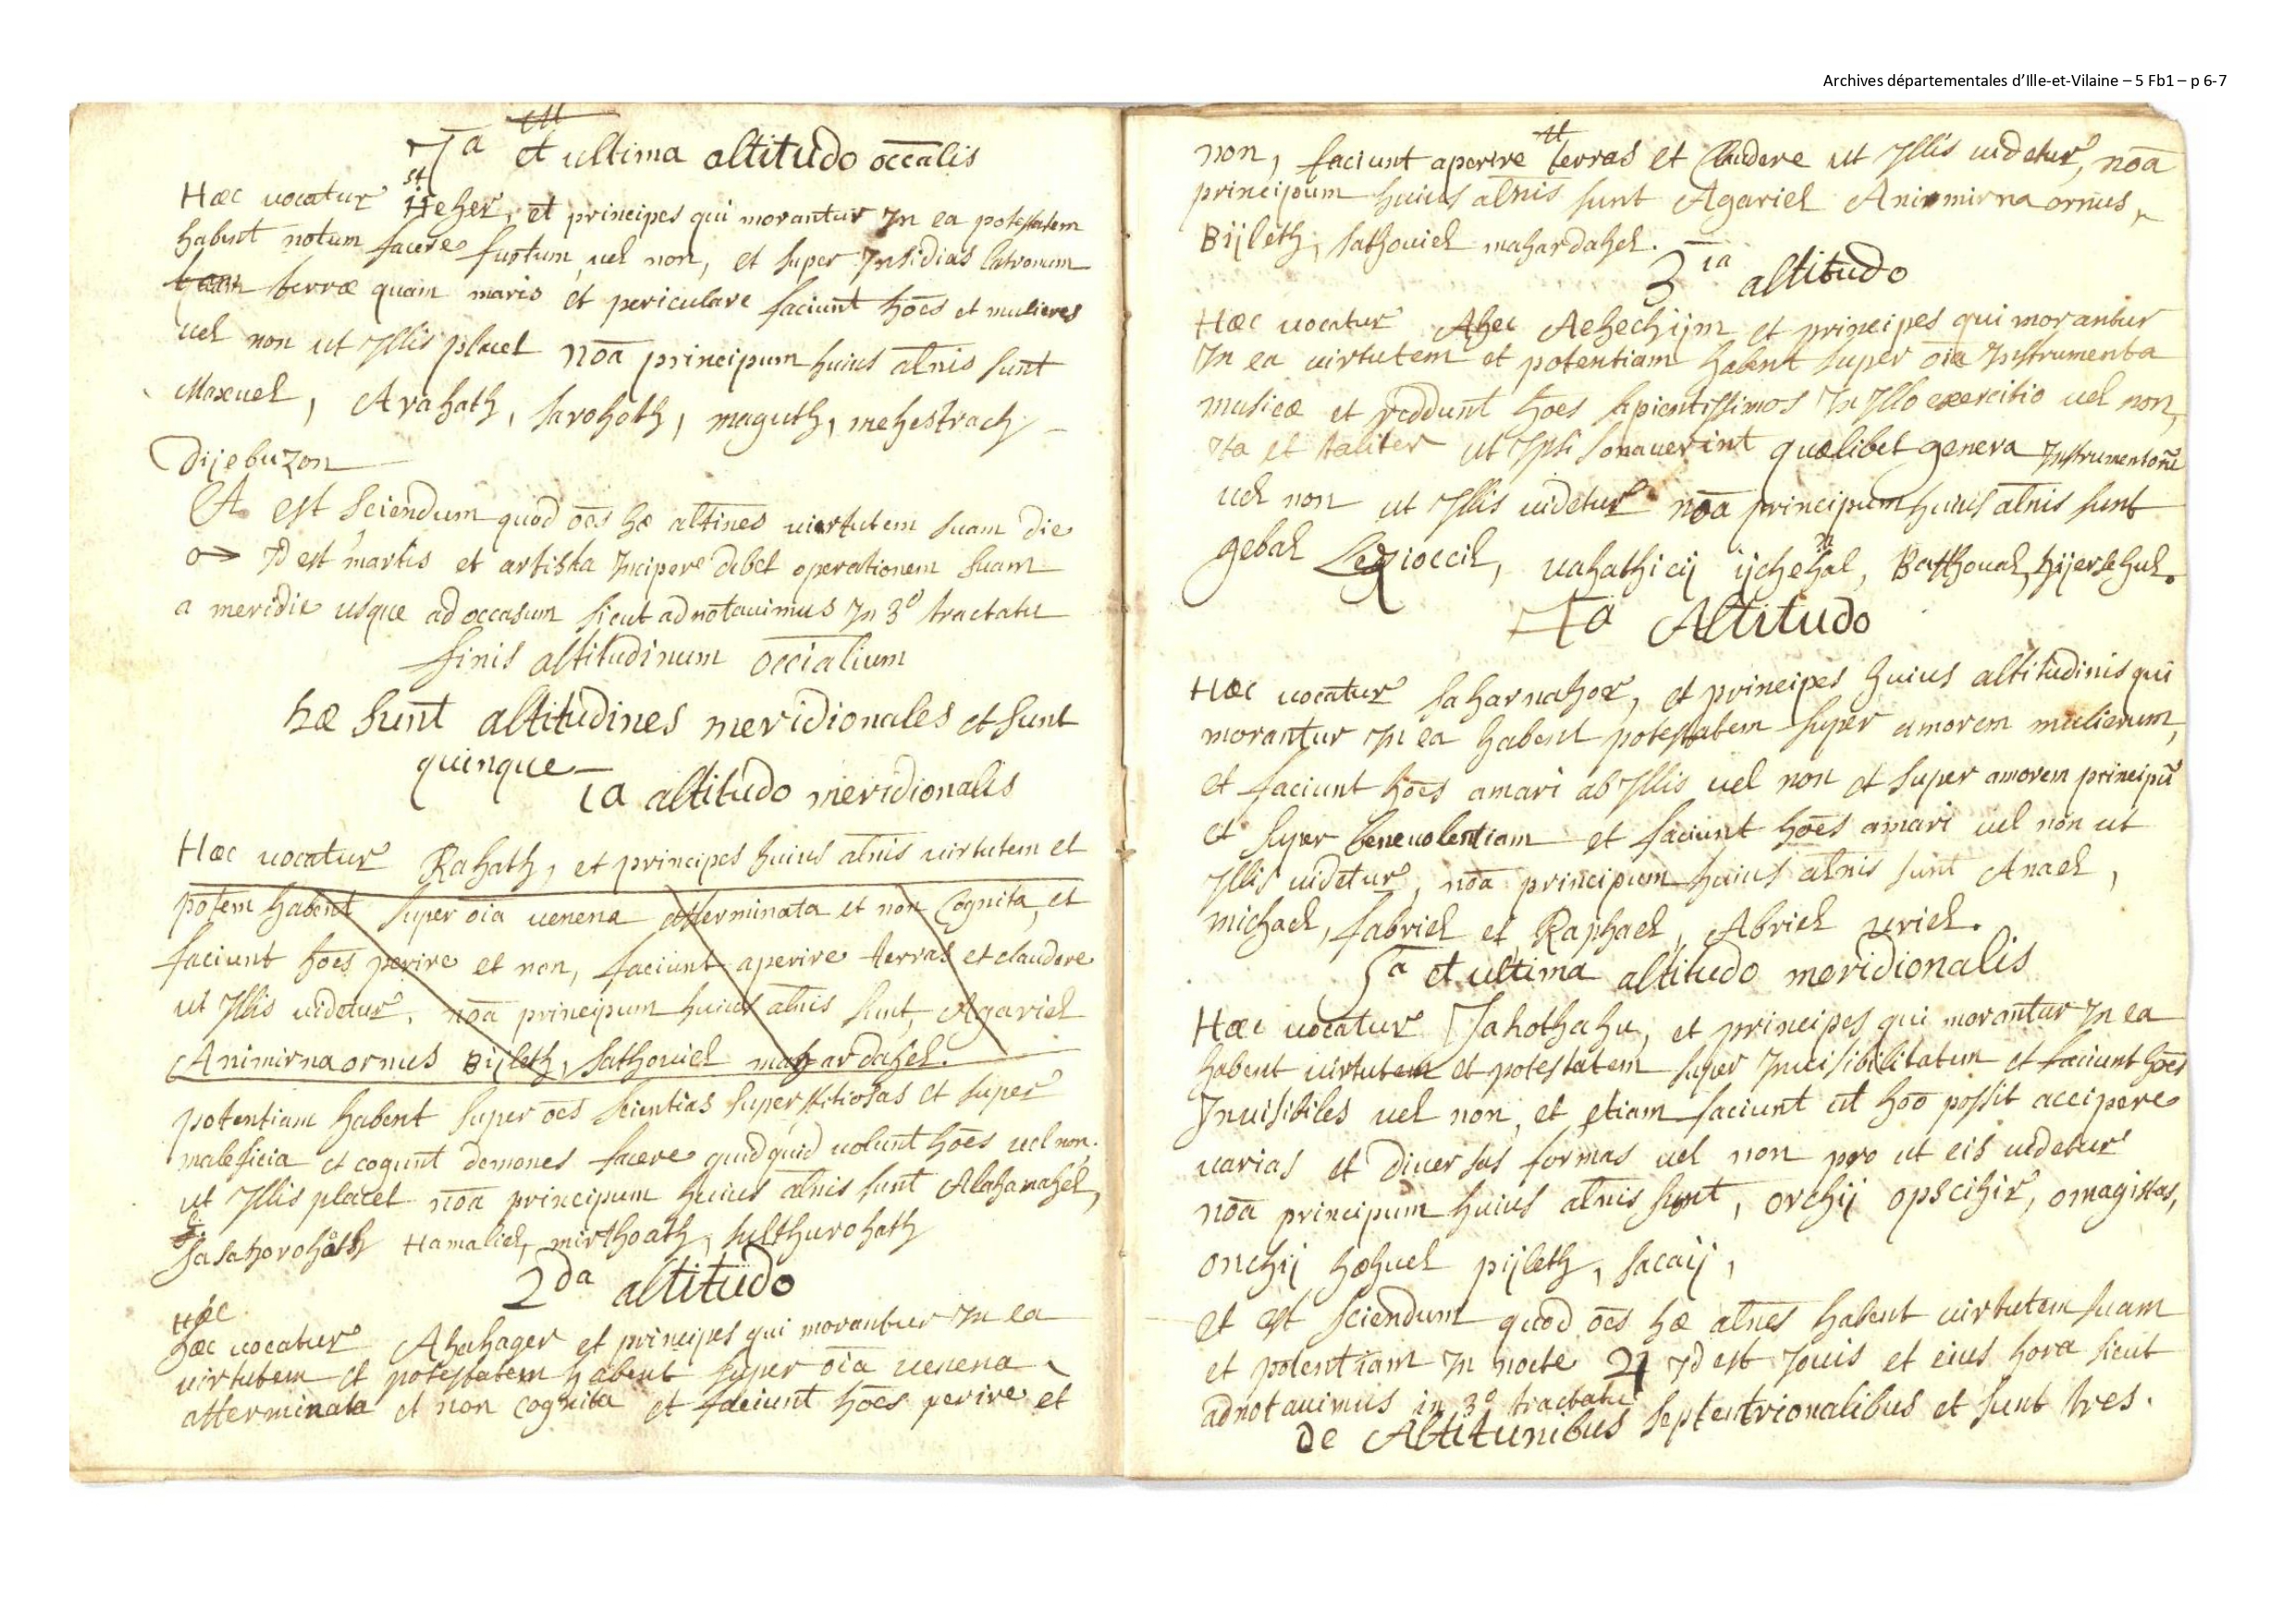 Archives départementales d’Ille-et-Vilaine – 5 Fb1 – p 6-7
7a et ultima altitudo occālis
Hæc uocatur Heher, et principes qui morantur In ea potestatem
habent notum facere furtum uel non, et super Insidias latronum
terræ quam maris et periculare faciunt hōēs et mulieres
uel non ut Illis placet nōā principum huius alnis sunt
Maxuel, Arahath, sarohoth, maguth, mehestrach
Dijebuzon
A est sciendum quod ōēs hæ altines uirtutem suam die
♂ Id est martis et artista Incipere debet operationem suam
a meridie usque ad occasum sicut adnotauimus In 3o tractatu
finis altitudinum occialium
hæ sunt altitudines meridionales et sunt
quinque
1a altitudo meridionalis
Hæc uocatur Rahath, et principes huius alnis uirtutem et
potem habent super oīā uenena atterminata et non Cognita, et
faciunt hōēs perire et non, faciunt aperire terras et claudere
ut Illis uidetur. nōā principum huius alnis sunt, Agariel
Animirna ornus Bijleth, sathouiel mahardahel.
potentiam habent super ōēs scientias superstitiosas et super
maleficia et cogunt demones facere quidquid uolunt hōēs uel non.
ut Illis placet nōā principum huius alnis sunt Alahanahel,
sasahorohath Hamaliel, mirthoath, sulthurohath
2da altitudo
Hæc
hæc uocatur Ahahager et principes qui morantur In ea
uirtutem et potestatem habent super oīā uenena
atterminata et non cognita et faciunt hōēs perire et
non, faciunt aperire terras et claudere ut Illis uidetur, nōā
principum huius alnis sunt Agariel Animirna ornus,
Bijleth, sathouiel mahardahel.
3ia altitudo
Hæc uocatur Ahec Aehechijm et principes qui morantur
In ea uirtutem et potentiam habent super oīā Instrumenta
musicæ et reddunt hōēs sapientissimos In Illo exercitio uel non,
Ita et taliter ut Ipsi sonauerint quælibet genera Instrumentorū
uel non ut Illis uidetur nōā principum huius alnis sunt
gebal Legioccil, uahathicij ijchehal, Batthoual, hijersehul.
4a Altitudo
Hæc uocatur saharnahor, et principes huius altitudinis qui
morantur In ea habent potestatem super amorem mulierum,
et faciunt hōēs amari ab Illis uel non et super amorem principū
et super beneuolentiam et faciunt hōēs amari uel non ut
Illis uidetur, nōā principum huius alnis sunt Anael,
michael, sabriel et Raphael, Abriel uriel.
5a et ultima altitudo meridionalis
Hæc uocatur Jahothahu, et principes qui morantur In ea
habent uirtutem et potestatem super Inuisibilitatem et faciunt hōēs
Inuisibiles uel non, et etiam faciunt ut hōō possit accipere
uarias et diuersas formas uel non pro ut eis uidetur
nōā principum huius alnis sunt, orchij opscihir, omagistas,
onchij hæhuel pijleth, sacaij,
et est sciendum quod ōēs hæ alnes habent uirtutem suam
et potentiam In nocte ♃ Id est Jouis et eius hora sicut
adnotauimus in 3o tractatu
de Altitunibus septentrionalibus et sunt tres.